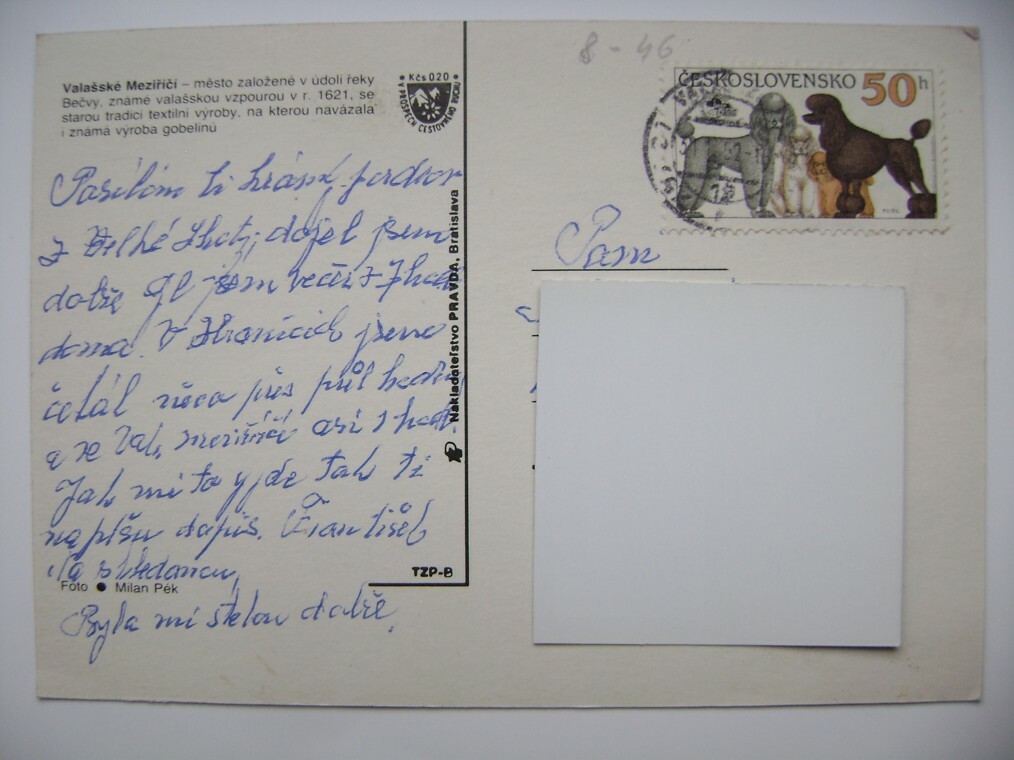 Valašské Meziříčí – město založené v údolí řeky
Bečvy, známé valašskou vzpourou v r. 1621, se
starou tradicí textilní výroby, na kterou navázala
i známá výroba gobelínů
Kčs 0.20
V PROSPĚCH CESTOVNÉHO RUCHU
Posílám ti krásný pozdrav
z Velké Lhoty, dojel jsem
dobře jsem večer 7 hod
doma. V Hranicích jsem
čekal něco přes půl hodiny
a ve Val. meziříčí asi hod
Jak mi to vyjde tak ti
napíšu dopis. František
Na shledanou
Foto ● Milan Pék
Byla mi dobře.
TZP-B
Nakladateľstvo PRAVDA, Bratislava
8-46
ČESKOSLOVENSKO 50h
Pan